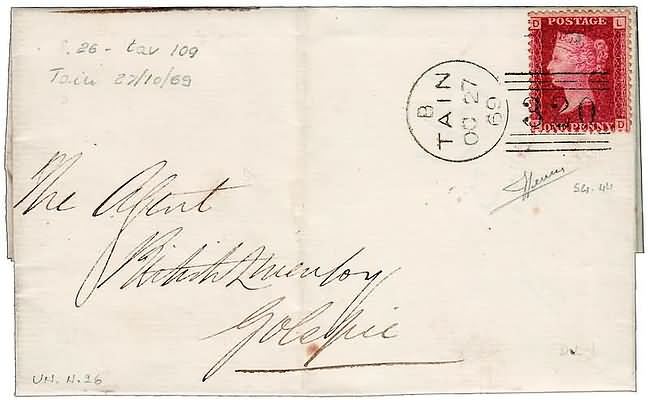 26 - tav 109
Tain 27/10/69
D POSTAGE L
ONE PENNY D
320
B
TAIN
OC 27
69
SG. 44
The Agent
British Linen Coy
Golspie
UN. N. 26